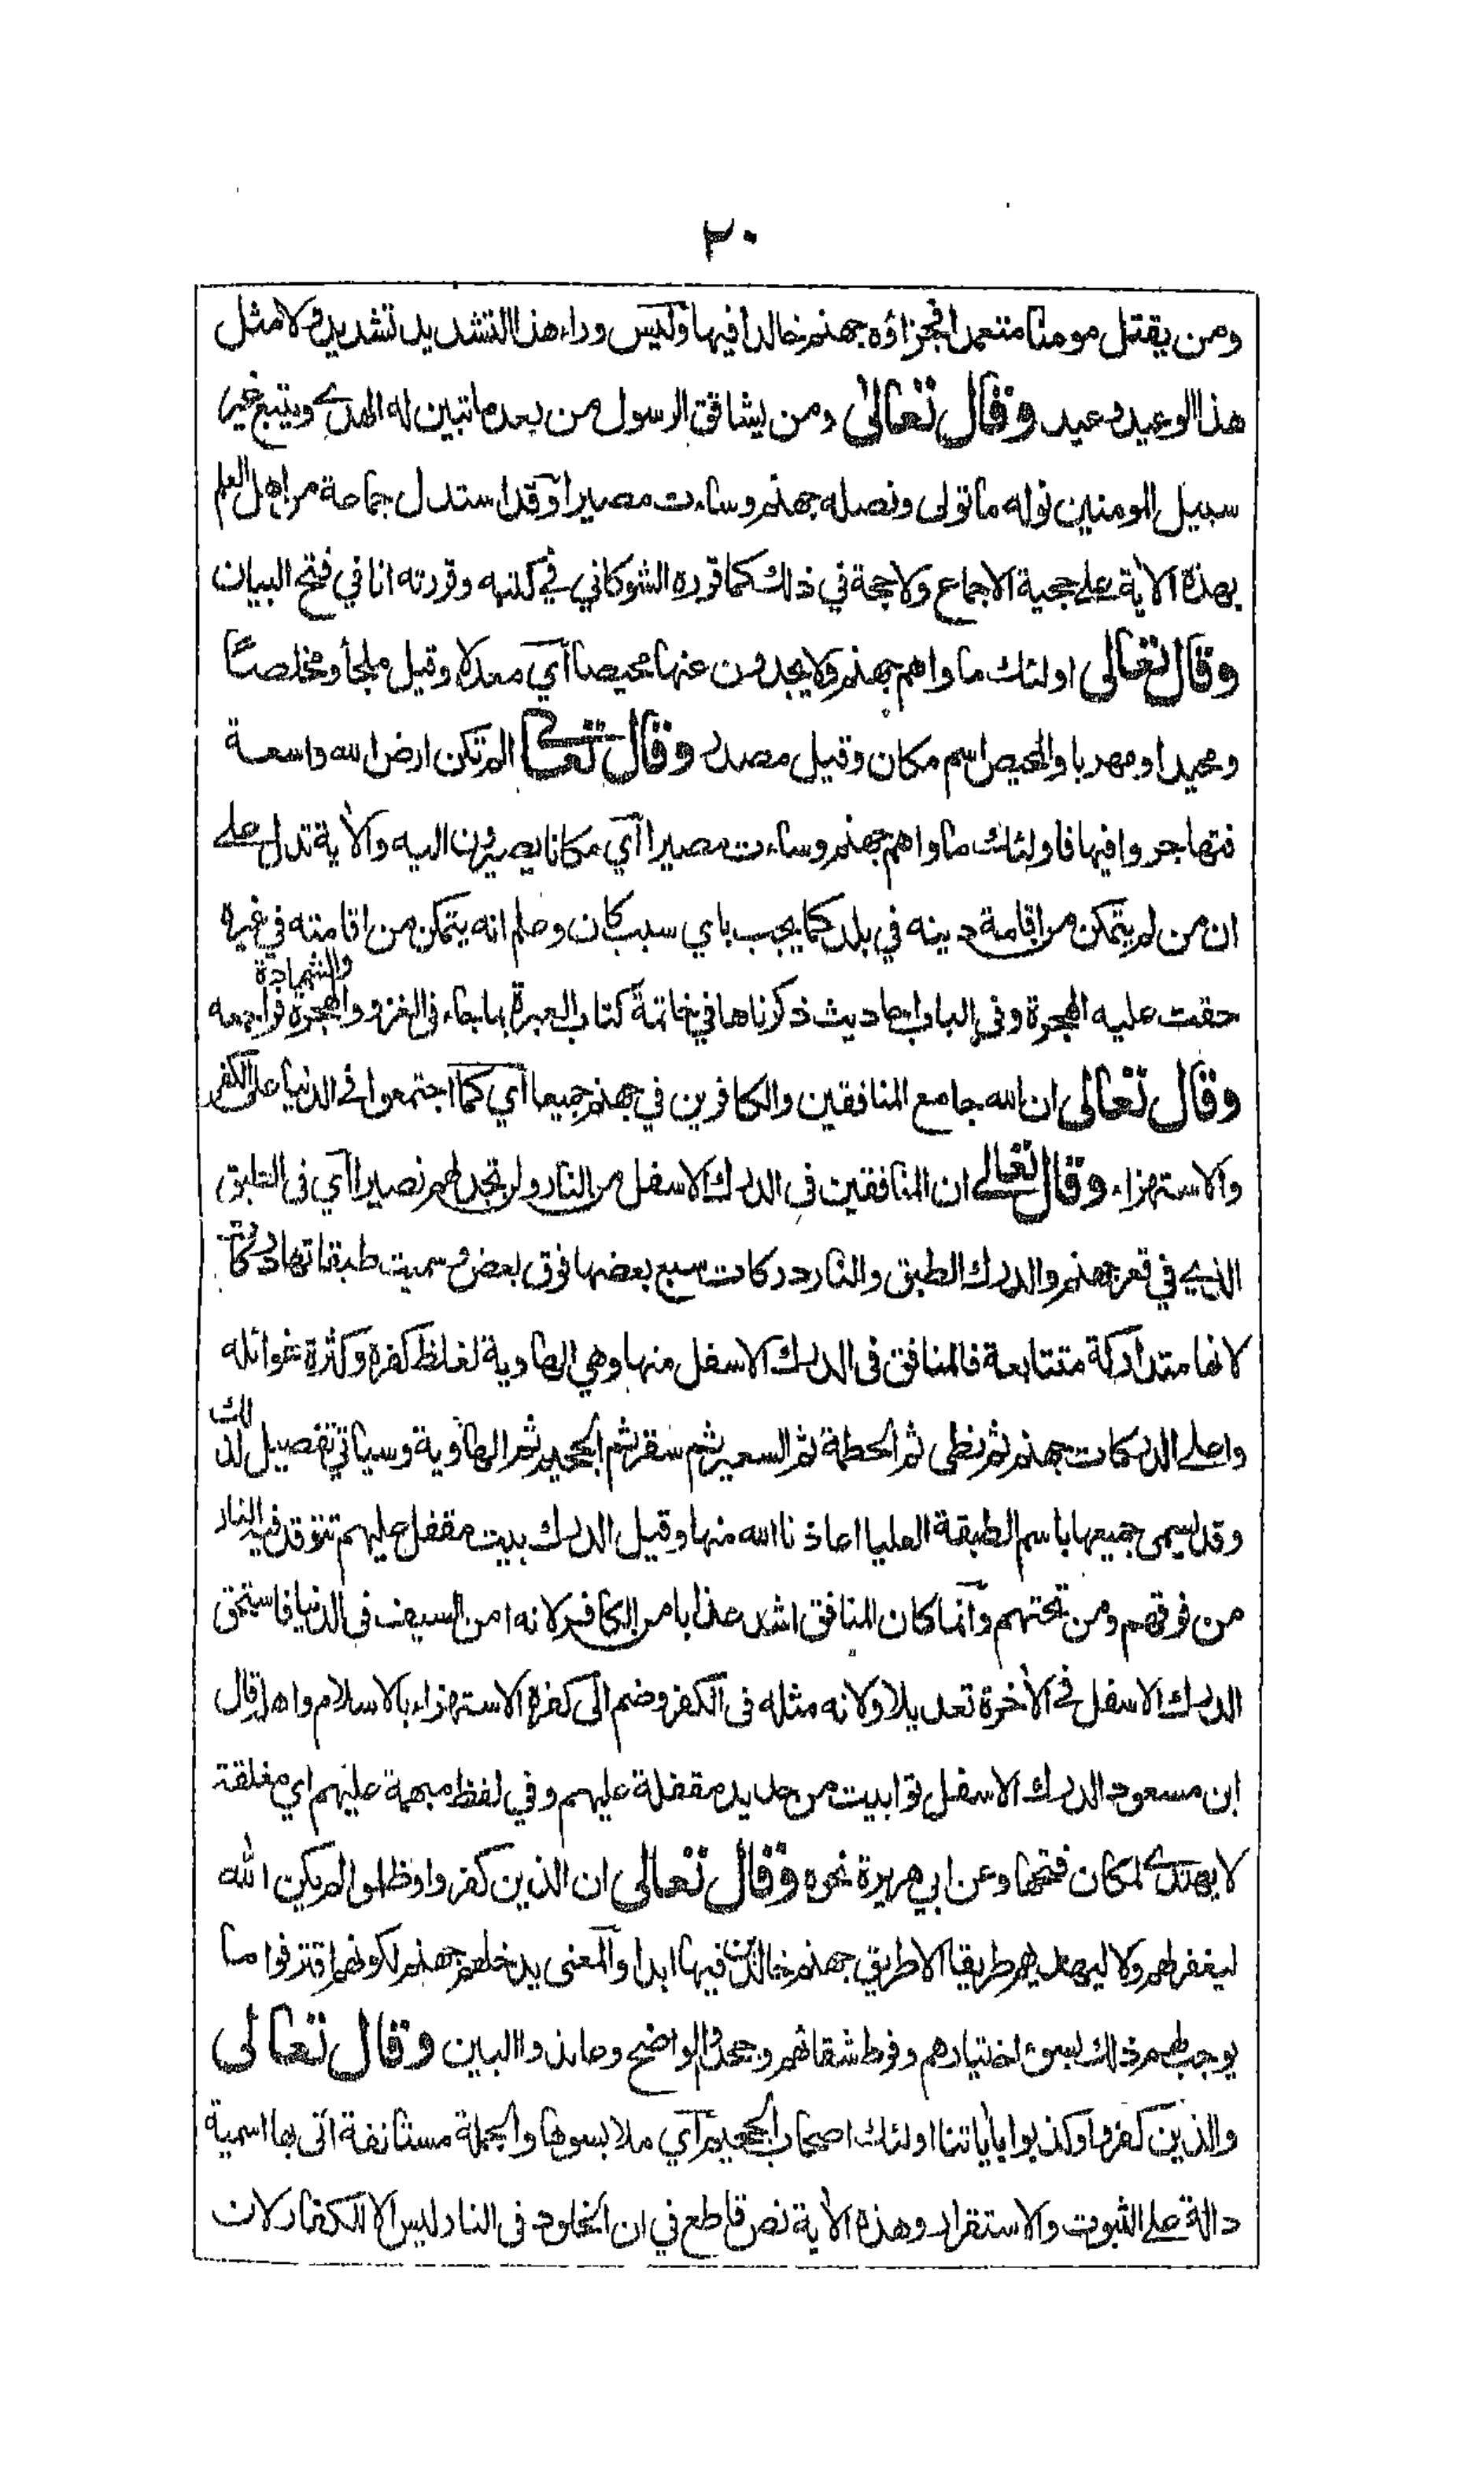 ٢٠
ومن يقتل مومنا متعمدا فجزاؤه جهنم خالدا فيها وليس وراء هذا التشديد تشديد ولا مثل
هذا الوعيد وعيد وقال تعالى ومن يشاقق الرسول من بعد ما تبين له الهدى ويتبع غير
سبيل المومنين نوله ما تولى ونصله جهنم وساءت مصيرا وقد استدل جماعة من اهل العلم
بهذه الآية على حجية الاجماع ولا حجة في ذلك كما قرره الشوكاني في كتبه وقررته انا في فتح البيان
وقال تعالى اولئك ماواهم جهنم ولا يجدون عنها محيصا أي معدلا وقيل ملجأ ومخلصا
ومحيدا ومهربا والمحيص اسم مكان وقيل مصدر وقال تعالى الم تكن ارض الله واسعة
فتهاجروا فيها فاولئك ماواهم جهنم وساءت مصيرا أي مكانا يصيرون اليه والآية تدل على
ان من لم يتمكن من اقامة دينه في بلد كما يجب باي سبب كان وعلم انه يتمكن من اقامته في غيره
حقت عليه الهجرة وفي الباب احاديث ذكرناها في خاتمة كتاب العبرة بما جاء في الغزو والشهادة والهجرة فراجعه
وقال تعالى ان الله جامع المنافقين والكافرين في جهنم جميعا أي كما اجتمعوا في الدنيا على الكفر
والاستهزاء وقال تعالى ان المنافقين في الدرك الاسفل من النار ولن تجد لهم نصيرا أي في الطبق
الذي في قعر جهنم والدرك الطبق والنار دركات سبع بعضها فوق بعض وسميت طبقاتها دركات
لانها متداركة متتابعة فالمنافق في الدرك الاسفل منها وهي الهاوية لغلظ كفره وكثرة غوائله
واعلى الدركات جهنم ثم لظى ثم الحطمة ثم السعير ثم سقر ثم الجحيم ثم الهاوية وسياتي تفصيل ذلك
وقد يسمى جميعها باسم الطبقة العليا اعاذنا الله منها وقيل الدرك بيت مقفل عليهم تتوقد فيه النار
من فوقهم ومن تحتهم وانما كان المنافق اشد عذابا من الكافر لانه امن السيف في الدنيا فاستحق
الدرك الاسفل في الآخرة تعديلا ولانه مثله في الكفر وضم الى كفره الاستهزاء بالاسلام واهله قال
ابن مسعود الدرك الاسفل توابيت من حديد مقفلة عليهم وفي لفظ مبهمة عليهم اي مغلقة
لا يهتدى لمكان فتحها وعن ابي هريرة نحوه وقال تعالى ان الذين كفروا وظلموا لم يكن الله
ليغفر لهم ولا ليهديهم طريقا الا طريق جهنم خالدين فيها ابدا والمعنى يدخلهم جهنم لكونهم اقترفوا ما
يوجب لهم ذلك بسوء اختيارهم وفرط شقائهم وجحدوا الواضح وعاندوا البين وقال تعالى
والذين كفروا وكذبوا بآياتنا اولئك اصحاب الجحيم أي ملابسوها والجملة مستانفة اتى بها اسمية
دالة على الثبوت والاستقرار وهذه الآية نص قاطع في ان الخلود في النار ليس الا للكفار لان